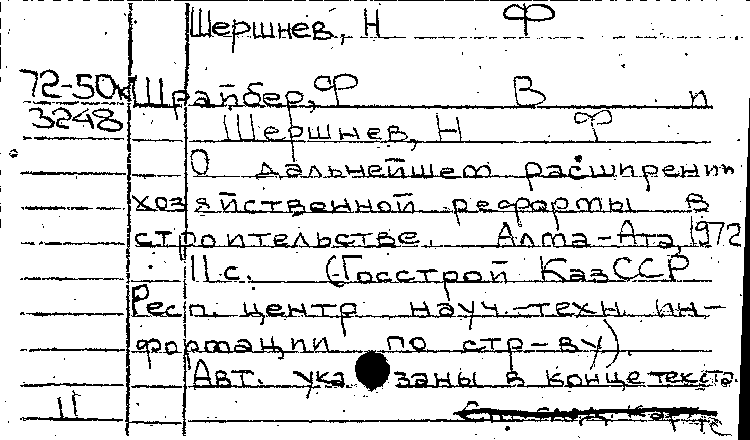 Шершнев, Н Ф
72-50к Шрайбер, Ф В п
3248 Шершнев, Н Ф
О дальнейшем расширении
хозяйственной реформы в
строительстве. Алма-Ата, 1972
11 с. (Госстрой КазССР
Респ. центр науч.-техн. ин-
формации по стр-ву).
Авт. указаны в конце текста.
11